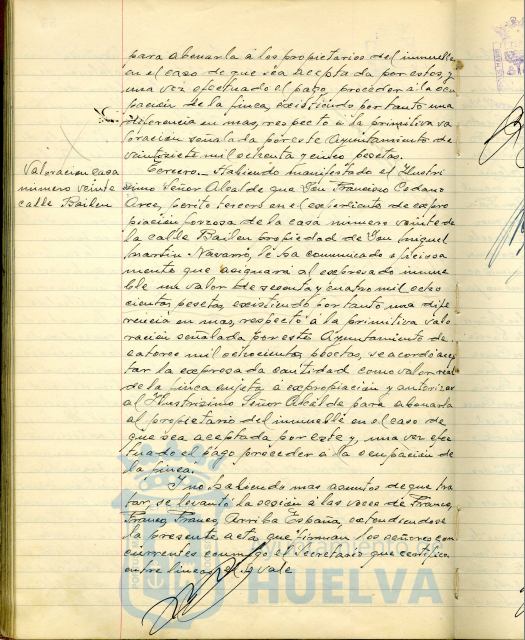 para abonarla á los propietarios del inmueble
en el caso de que sea aceptada por estos, y
una vez efectuado el pago, proceder á la ocu
pación de la finca, existiendo por tanto una
diferencia en mas, respecto á la primitiva va
loración señalada por este Ayuntamiento de
veintisiete mil ochenta y cinco pesetas.
Valoracion casa
número veinte
calle Bailen
Tercero.- Habiendo manifestado el Ilustri
simo Señor Alcalde que Don Francisco Cedano
Arce, perito tercero en el expediente de expro
piación forzosa de la casa número veinte de
la calle Bailen propiedad de Don Miguel
Martin Navarro, le ha comunicado oficiosa
mente que asignará al expresado inmue
ble un valor de sesenta y cuatro mil ocho
cientas pesetas, existiendo por tanto una dife
rencia en mas, respecto á la primitiva valo
ración señalada por este Ayuntamiento de
catorce mil ochocientas pesetas, se acordó acep
tar la expresada cantidad como valor real
de la finca sujeta á expropiación y autorizar
al Ilustrísimo Señor Alcalde para abonarla
al propietario del inmueble en el caso de
que sea aceptada por este y, una vez efec
tuado el pago proceder á la ocupación de
la finca.
Y no habiendo mas asuntos de que tra
tar, se levantó la sesión á las voces de Franco,
Franco, Franco, Arriba España, extendiendose
la presente acta que firman los señores con
currentes conmigo el Secretario que certifico
entre lineas el vale
HUELVA